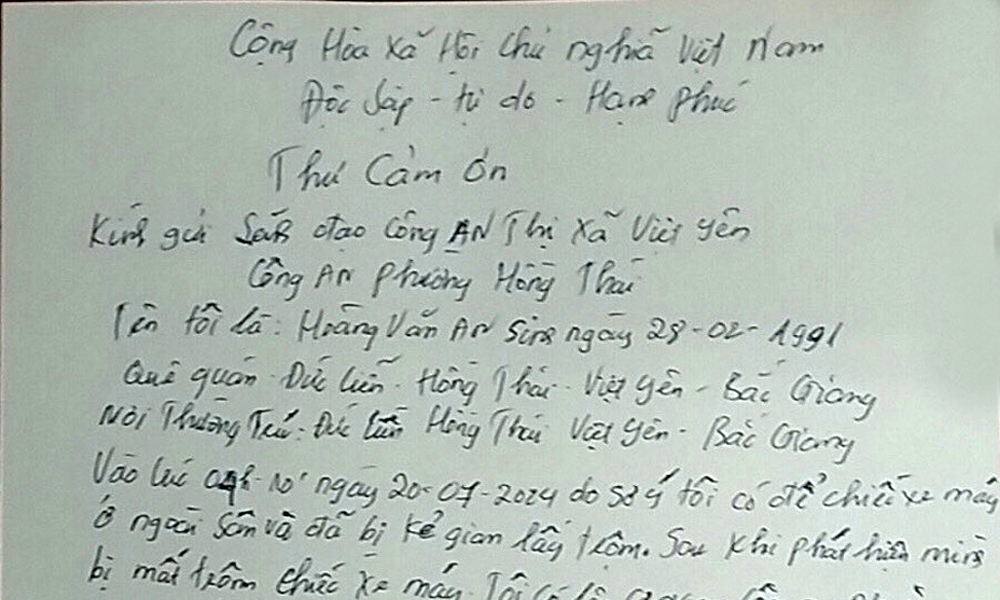 Cộng Hòa Xã Hội Chủ nghĩa Việt Nam
Độc Lập - tự do - Hạnh phúc
Thư Cảm Ơn
Kính gửi Lãnh đạo Công AN Thị Xã Việt Yên
Công AN phường Hồng Thái
Tên tôi là: Hoàng Văn AN Sinh ngày 28-02-1991
Quê quán - Đức Liễn - Hồng Thái - Việt Yên - Bắc Giang
Nơi Thường Trú: Đức Liễn Hồng Thái Việt Yên - Bắc Giang
Vào lúc 04h-10' ngày 20-07-2024 do sơ ý tôi có để chiếc xe máy
ở ngoài sân và đã bị kẻ gian lấy trộm. Sau khi phát hiện mình
bị mất trộm chiếc xe máy. Tôi có